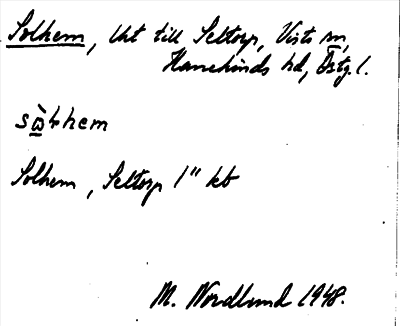 Solhem, lht till Seltorp, Vists sn,
Hanekinds hd, Östg. l.
sὼlhem
Solhem, Seltorp 1" kb
M. Nordlund 1948.